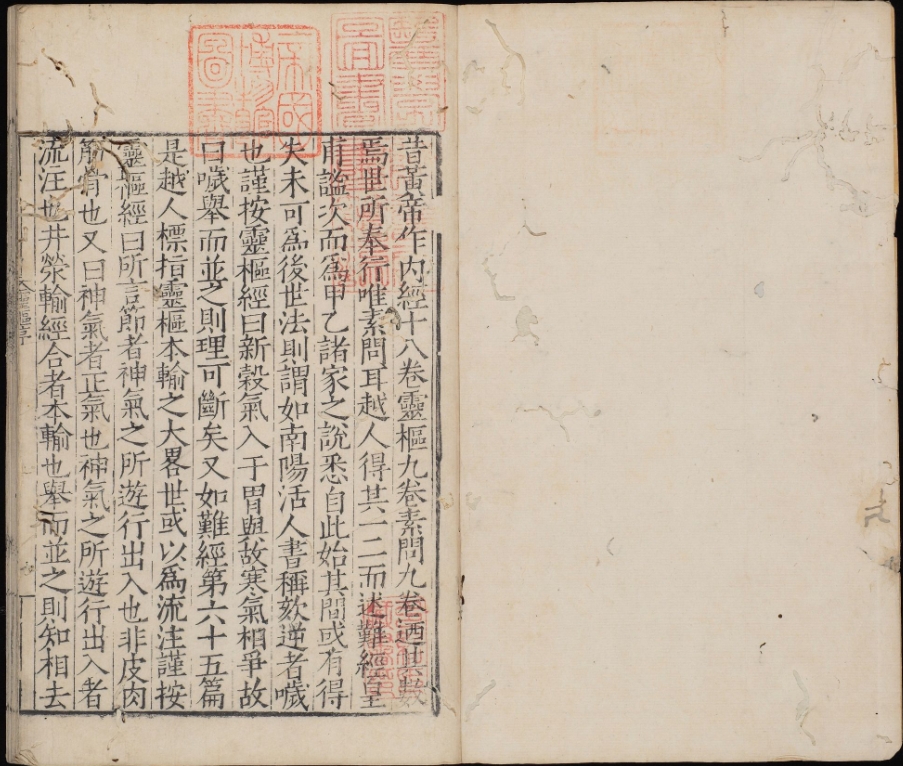 昔黃帝作內經十八卷靈樞九卷素問九卷迺其數
焉世所奉行唯素問耳越人得其一二而述難經皇
甫謐次而為甲乙諸家之說悉自此始其間或有得
失未可為後世法則謂如南陽活人書稱欬逆者噦
也謹按靈樞經曰新穀氣入于胃與故寒氣相爭故
曰噦舉而並之則理可斷矣又如難經第六十五篇
是越人標指靈樞本輸之大畧世或以為流注謹按
靈樞經曰所言節者神氣之所遊行出入也非皮肉
筋骨也又曰神氣者正氣也神氣之所遊行出入者
流注也井滎輸經合者本輸也舉而並之則知相去
靈樞序